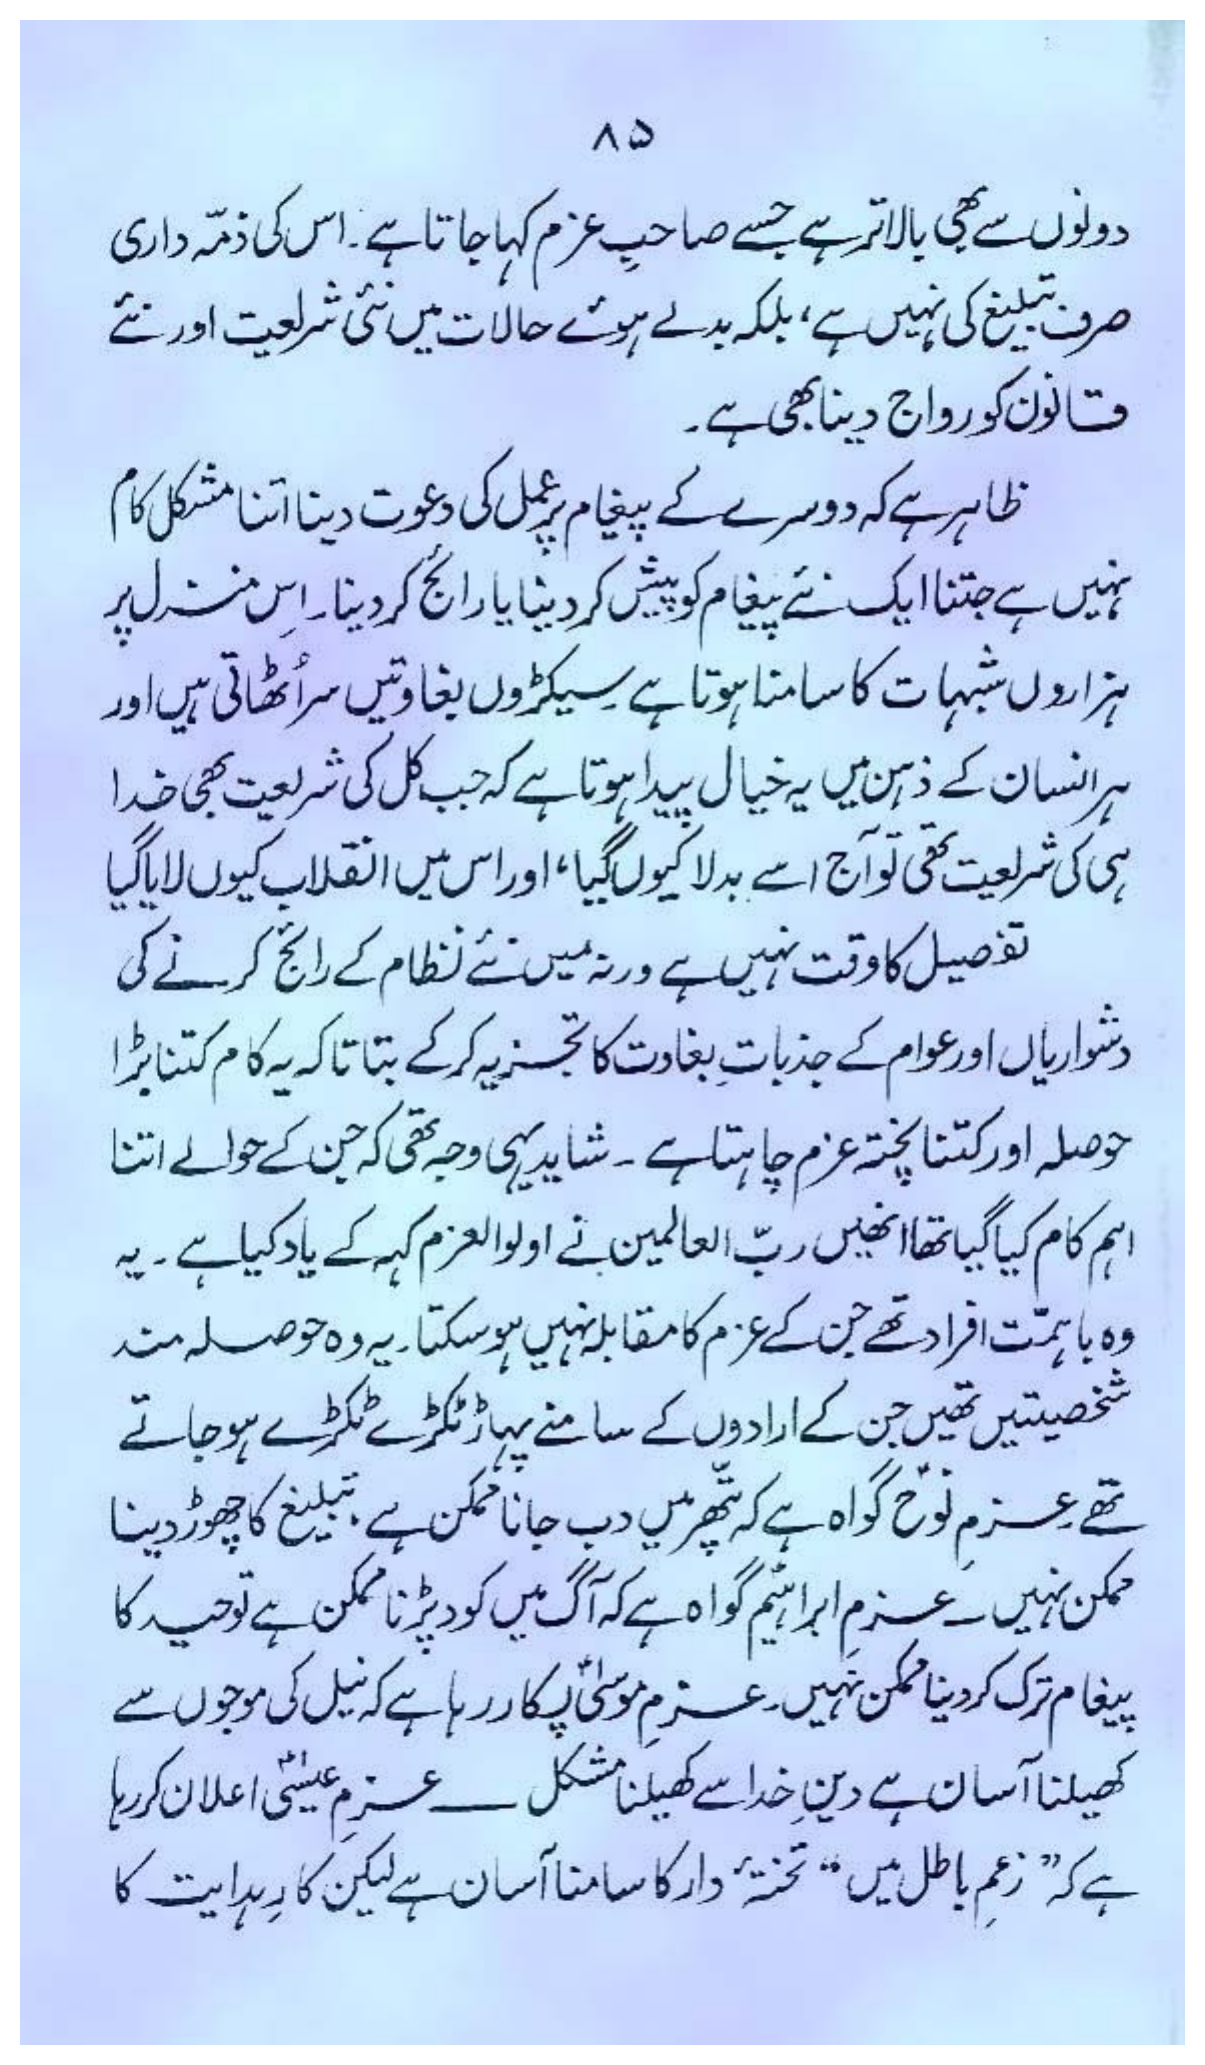 ۸۵
دونوں سے بھی بالاتر ہے جسے صاحبِ عزم کہا جاتا ہے۔ اس کی ذمّہ داری
صرف تبلیغ کی نہیں ہے، بلکہ بدلے ہوئے حالات میں نئی شریعت اور نئے
قانون کو رواج دینا بھی ہے۔
ظاہر ہے کہ دوسرے کے پیغام پر عمل کی دعوت دینا اتنا مشکل کام
نہیں ہے جتنا ایک نئے پیغام کو پیش کر دینا یا رائج کر دینا۔ اِس منزل پر
ہزاروں شبہات کا سامنا ہوتا ہے۔ سیکڑوں بغاوتیں سر اُٹھاتی ہیں اور
ہر انسان کے ذہن میں یہ خیال پیدا ہوتا ہے کہ جب کل کی شریعت بھی خدا
ہی کی شریعت تھی تو آج اسے بدلا کیوں گیا، اور اس میں انقلاب کیوں لایا گیا
تفصیل کا وقت نہیں ہے ورنہ میں نئے نظام کے رائج کرنے کی
دشواریاں اور عوام کے جذباتِ بغاوت کا تجزیہ کر کے بتاتا کہ یہ کام کتنا بڑا
حوصلہ اور کتنا پختہ عزم چاہتا ہے۔ شاید یہی وجہ تھی کہ جن کے حوالے اتنا
اہم کام کیا گیا تھا انھیں ربّ العالمین نے اولوالعزم کہہ کے یاد کیا ہے۔ یہ
وہ باہمّت افراد تھے جن کے عزم کا مقابلہ نہیں ہو سکتا۔ یہ وہ حوصلہ مند
شخصیتیں تھیں جن کے ارادوں کے سامنے پہاڑ ٹکڑے ٹکڑے ہو جاتے
تھے۔ عزمِ نوحؑ گواہ ہے کہ پتّھر میں دب جانا ممکن ہے، تبلیغ کا چھوڑ دینا
ممکن نہیں ۔ عزمِ ابراہیمؑ گواہ ہے کہ آگ میں کود پڑنا ممکن ہے توحید کا
پیغام ترک کر دینا ممکن نہیں۔ عزمِ موسیٰؑ پکار رہا ہے کہ نیل کی موجوں سے
کھیلنا آسان ہے دینِ خدا سے کھیلنا مشکل ــــ عزمِ عیسیٰؑ اعلان کر رہا
ہے کہ ”زعمِ باطل میں“ تختۂ دار کا سامنا آسان ہے لیکن کارِ ہدایت کا